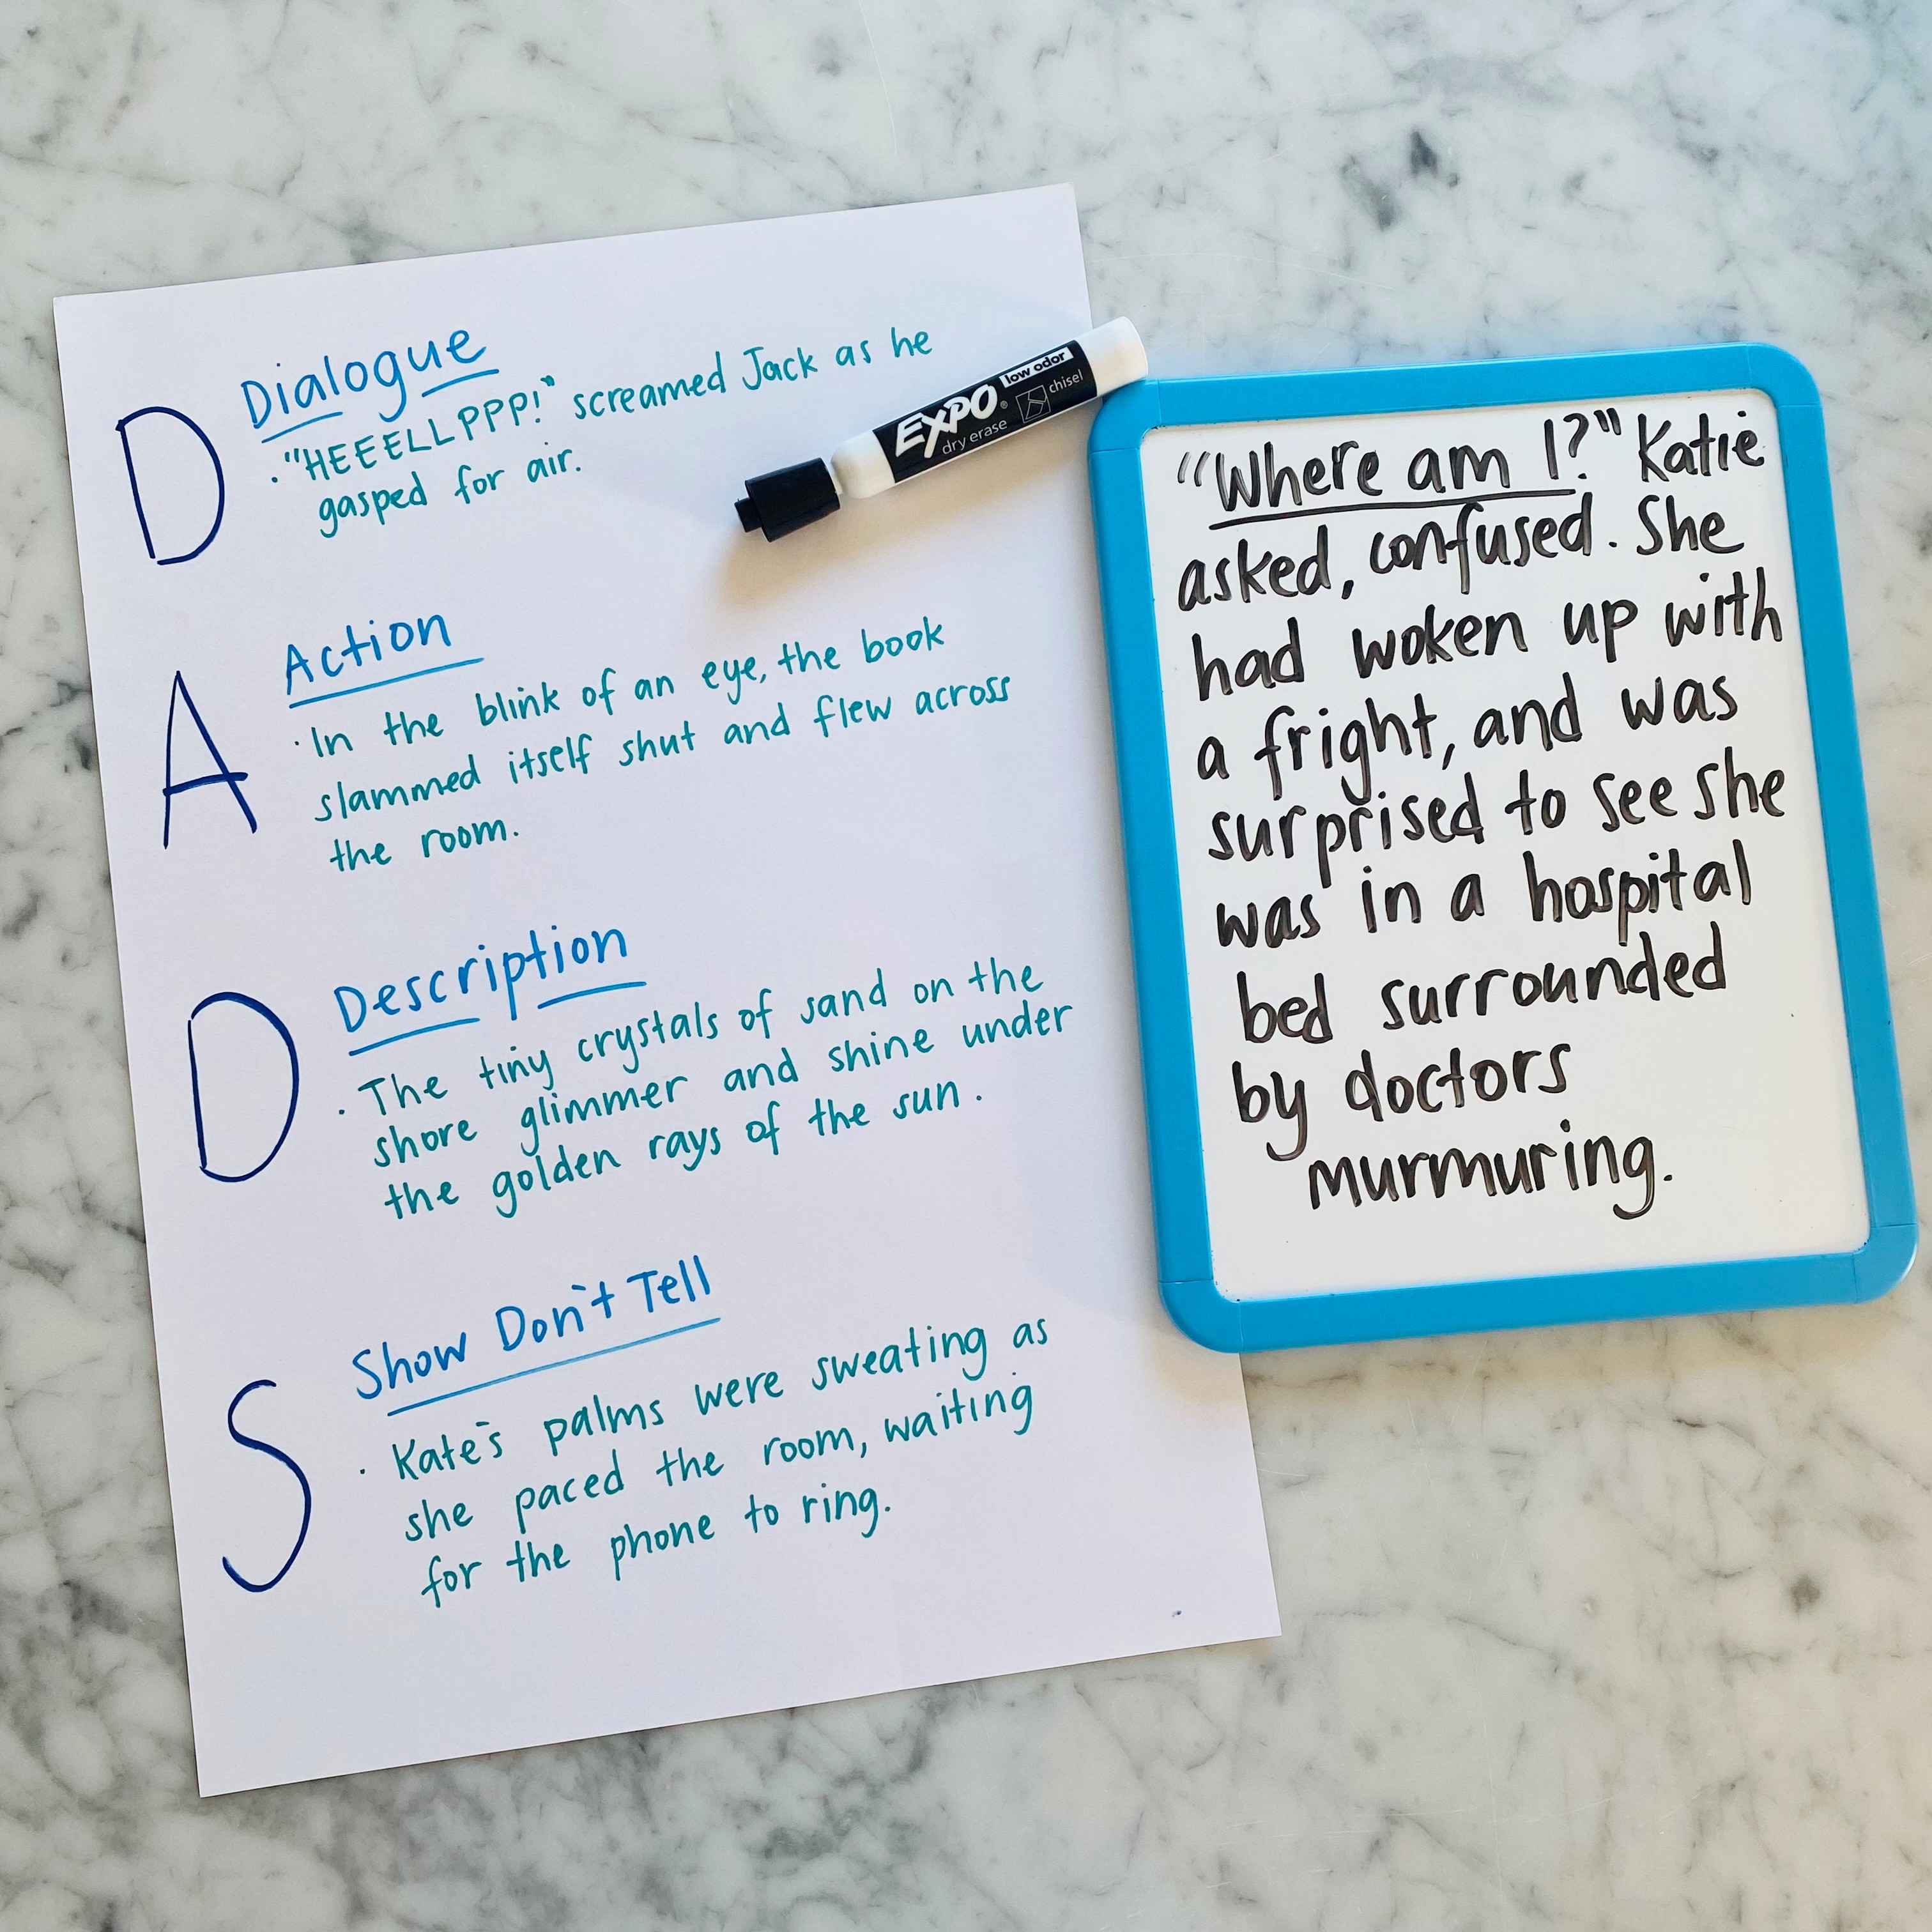 D
Dialogue
· "HEEELLPPP!" screamed Jack as he
gasped for air.
A
Action
· In the blink of an eye, the book
slammed itself shut and flew across
the room.
D
Description
· The tiny crystals of sand on the
shore glimmer and shine under
the golden rays of the sun.
S
Show Don't Tell
· Kate's palms were sweating as
she paced the room, waiting
for the phone to ring.
EXPO®
low odor
dry erase
chisel
"Where am I?" Katie
asked, confused. She
had woken up with
a fright, and was
surprised to see she
was in a hospital
bed surrounded
by doctors
murmuring.